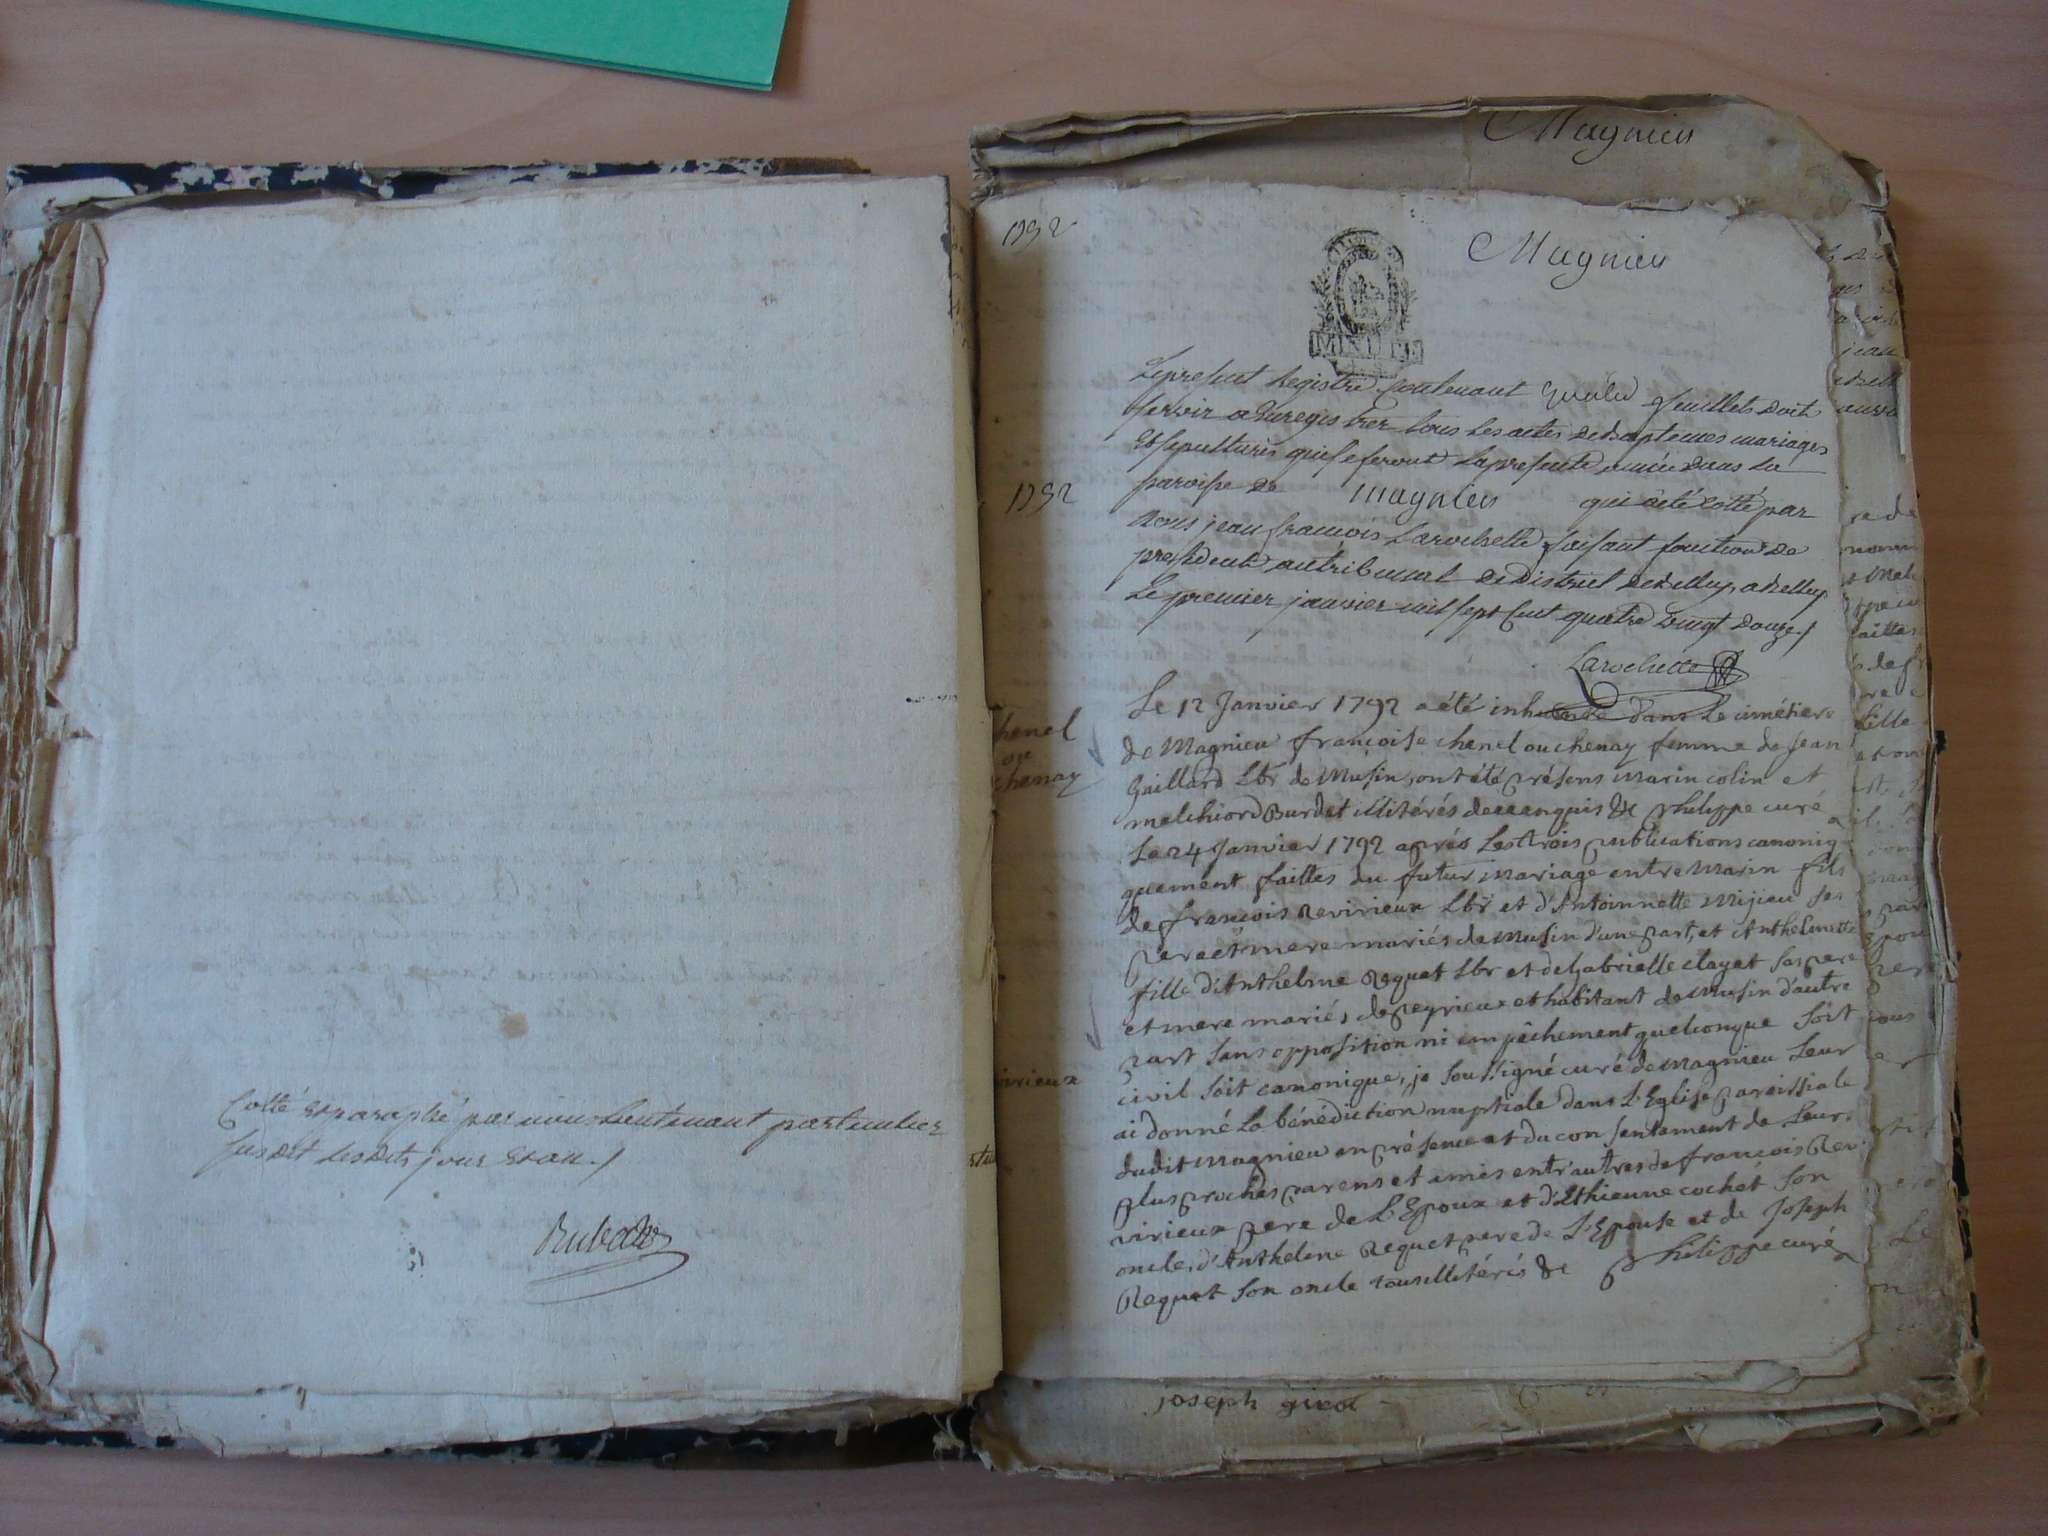 Cotté et paraphé par nous Lieutenant particulier
susdit Lesdits jour et an ./
Magnieu
1792
Magnieu
MINUTE
Le present Registre Contenant feuillets doit
servir a Enregistrer tous Les actes de baptemes mariages
Et sepultures qui se feront La presente année dans La
paroisse de magnieu qui a été cotté par
1792
Nous jean françois Larochette faisant fonction de
president au tribunal de District de Belley, a Belley
Le premier janvier mil sept Cent quatre vingt douze ./
Larochette
Le 12 Janvier 1792 a été inhumée dans Le cimétiere
de Magnieu françoise chenel ou chenay femme de Jean
chenel
ou
chenay
Gaillard Lbr de Musin, ont été présens Marin colin et
melchiord Burdet illitérés de ce enquis &c Philippe curé
Le 24 Janvier 1792 aprés Les trois publications canoniq
quement faittes du futur Mariage entre Marin fils
de françois Revirieux Lbr et d'Antoinnette Mijieu ses
pere et mere mariés de Musin d'une part, et Anthelmette
fille d'Anthelme Requet Lbr et de Gabrielle clayet ses pere
et mere mariés de peyrieux et habitant de Musin d'autre
part sans opposition ni empêchement quelconque soit
virieux
civil soit canonique, je soussigné curé de Magnieu Leur
ai donné La bénédiction nuptiale dans L'Eglise paroissiale
dudit Magnieu en présence et du consentement de Leurs
plus proches parens et amis entr'autres de françois Rev
virieux pere de L'Epoux et d'Ethienne cochet son
oncle, d'Anthelme Requet pere de L'Epouse et de Joseph
Requet son oncle tous illitérés &c Philippe curé
joseph